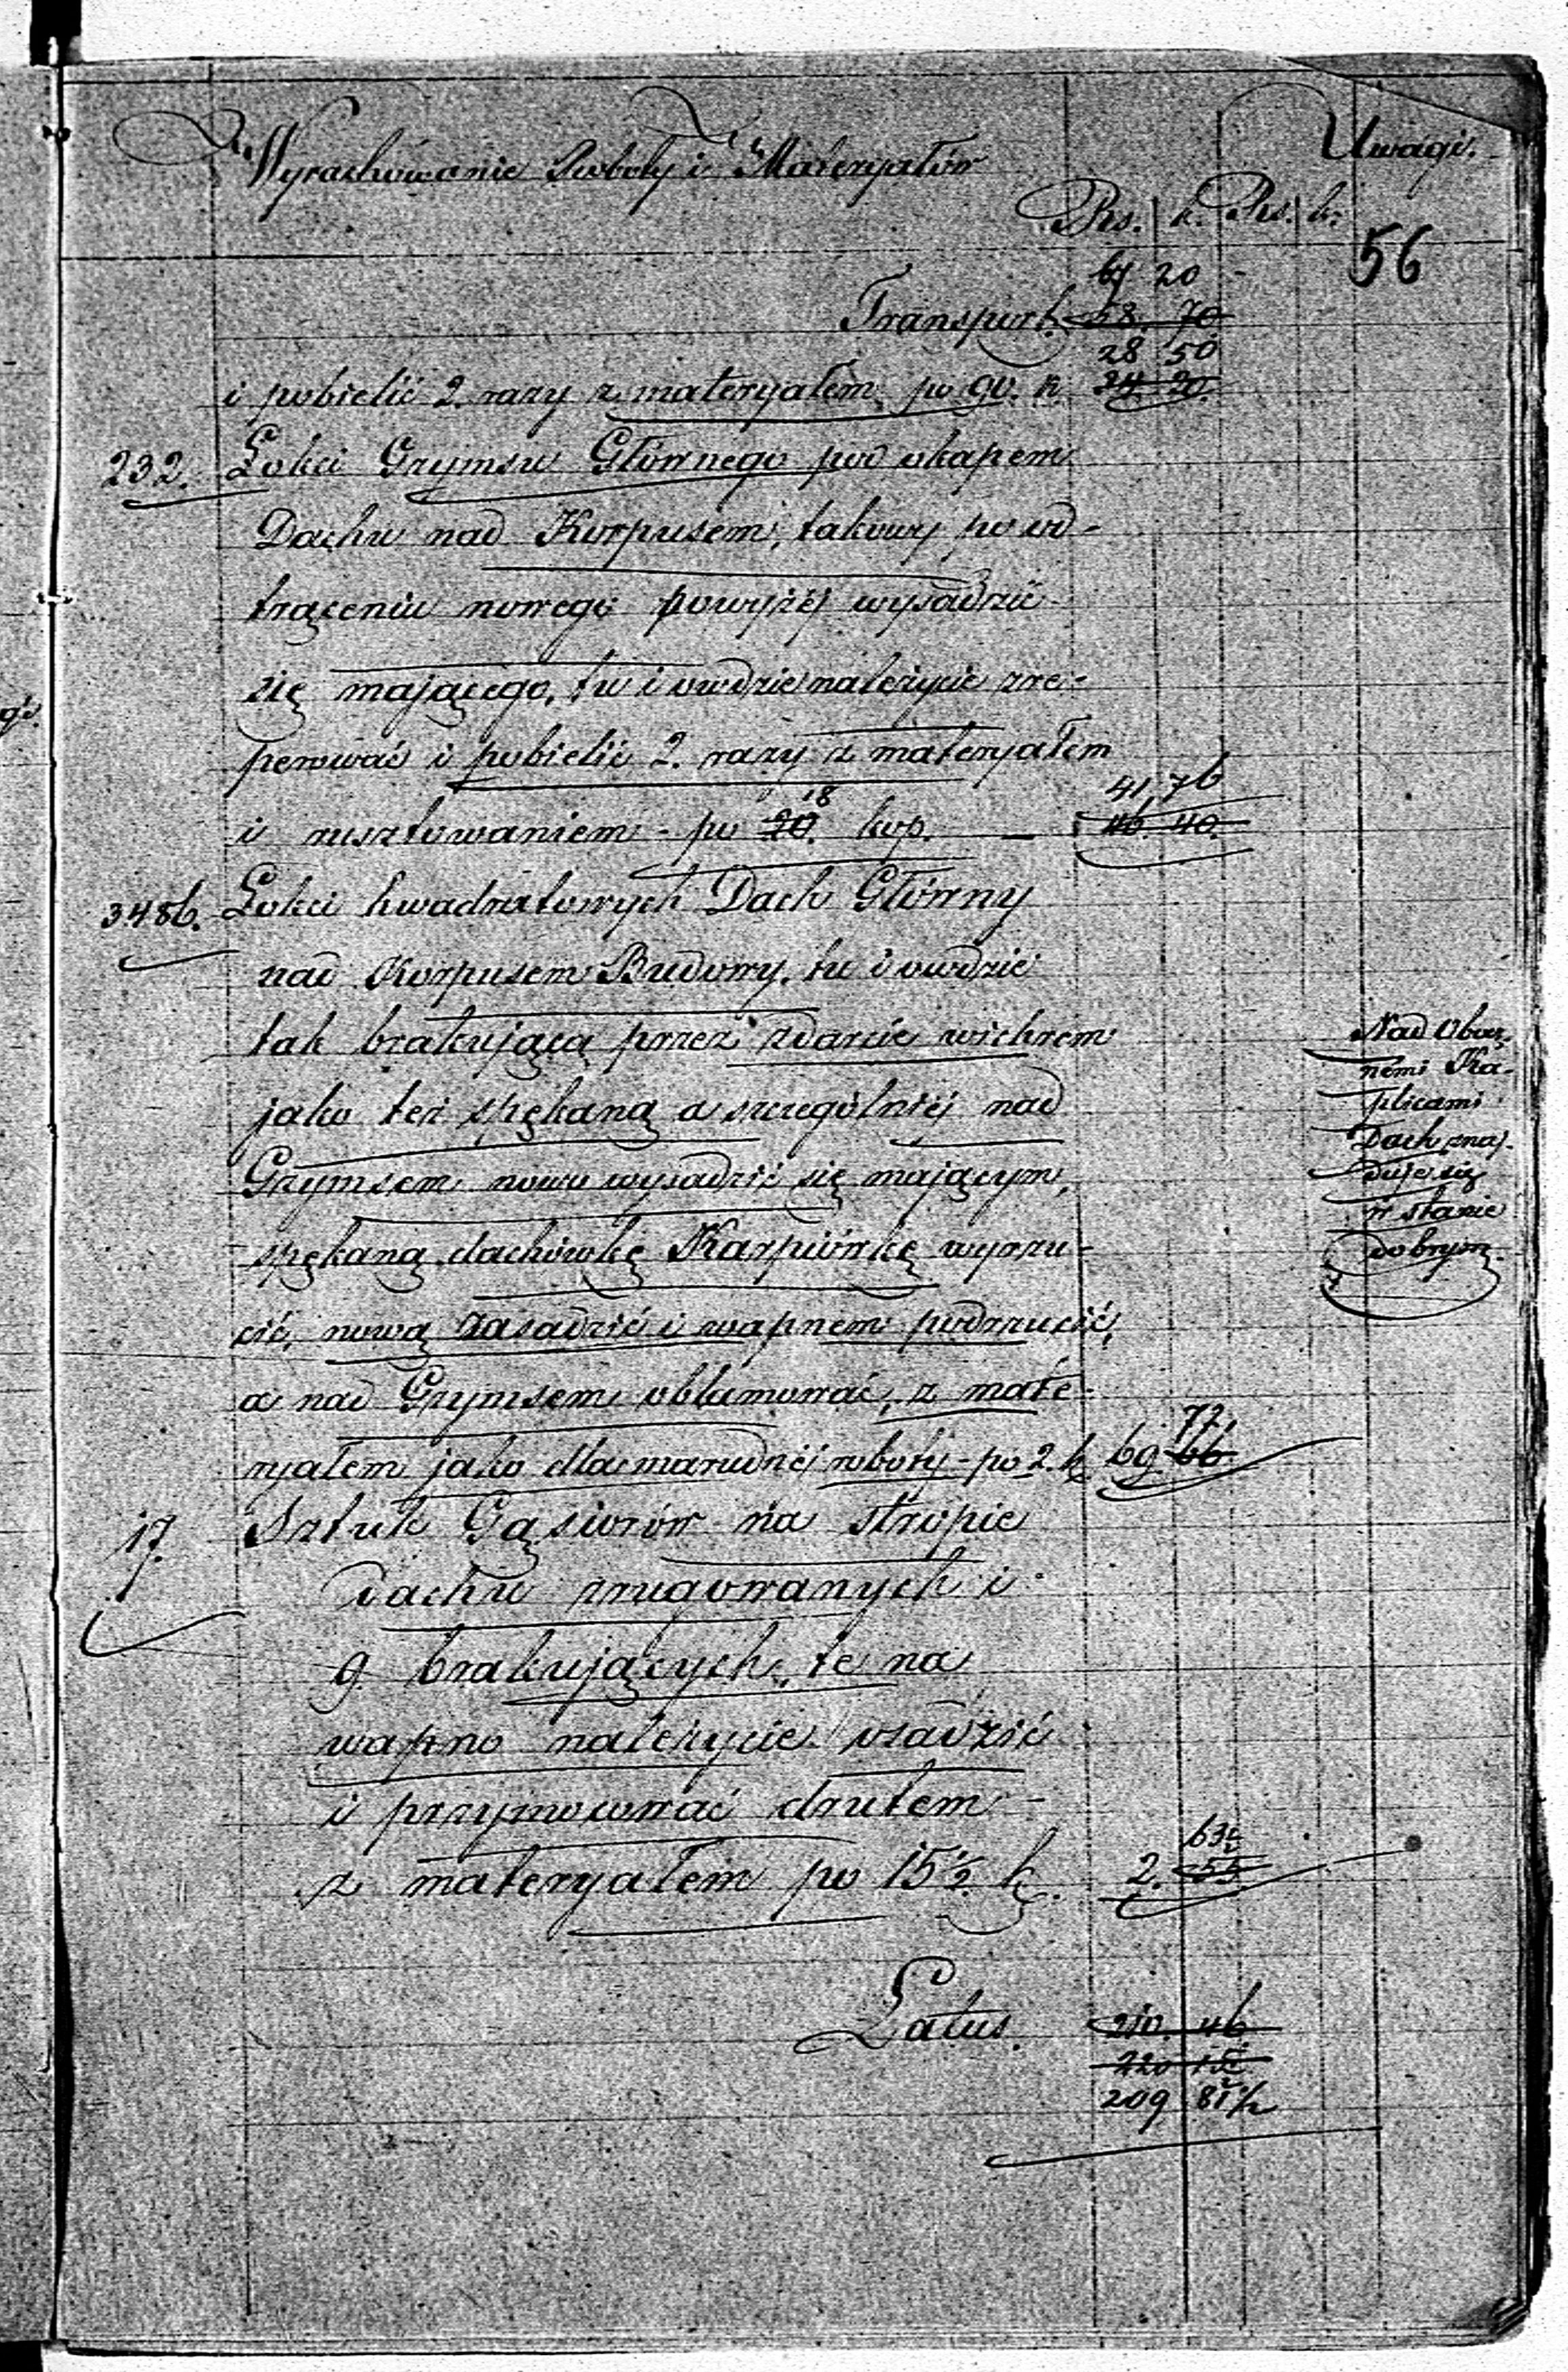 Wyrachowanie Roboty i Materyałów
Uwagi.
Rs. k. Rs. k.
56
67 20
Transport. 58. 70
28 50
i pobielić 2. razy z materyałem po 90. k. 24. 20.
232. Łokci Grymsu Głównego pod okapem
Dachu nad Korpusem, takowy po od-
trąceniu nowego powyżej wysadzić
się mającego, tu i owdzie należycie zre-
perować i pobielić 2. razy z materyałem
41,76
18
i rusztowaniem - po 20. kop. — 46. 40.
3486. Łokci kwadratowych Dach Główny
nad Korpusem Budowy, tu i owdzie
tak brakującą przez zdarcie wichrem
jako też spękaną a szczególniej nad
Grymsem nowo wysadzić się mającym,
spękaną dachówkę Karpiówkę wyrzu-
cić, nową zasadzić i wapnem podrzucić,
a nad Grymsem oblamować, z mate-
72
ryałem jako dla marudnéj roboty - po 2. k. 69. 66.
Nad Obud-
némi Ka-
plicami
Dach znaj-
duje się
w stanie
dobrym.
17. Sztuk Gąsiorów na stropie
Dachu zrugowanych i
9 brakujących, te na
wapno należycie osadzić
i przymocować drutem
63½
z materyałem po 15½ k. 2. 55
Latus. 210. 46
220 15½
209 81½